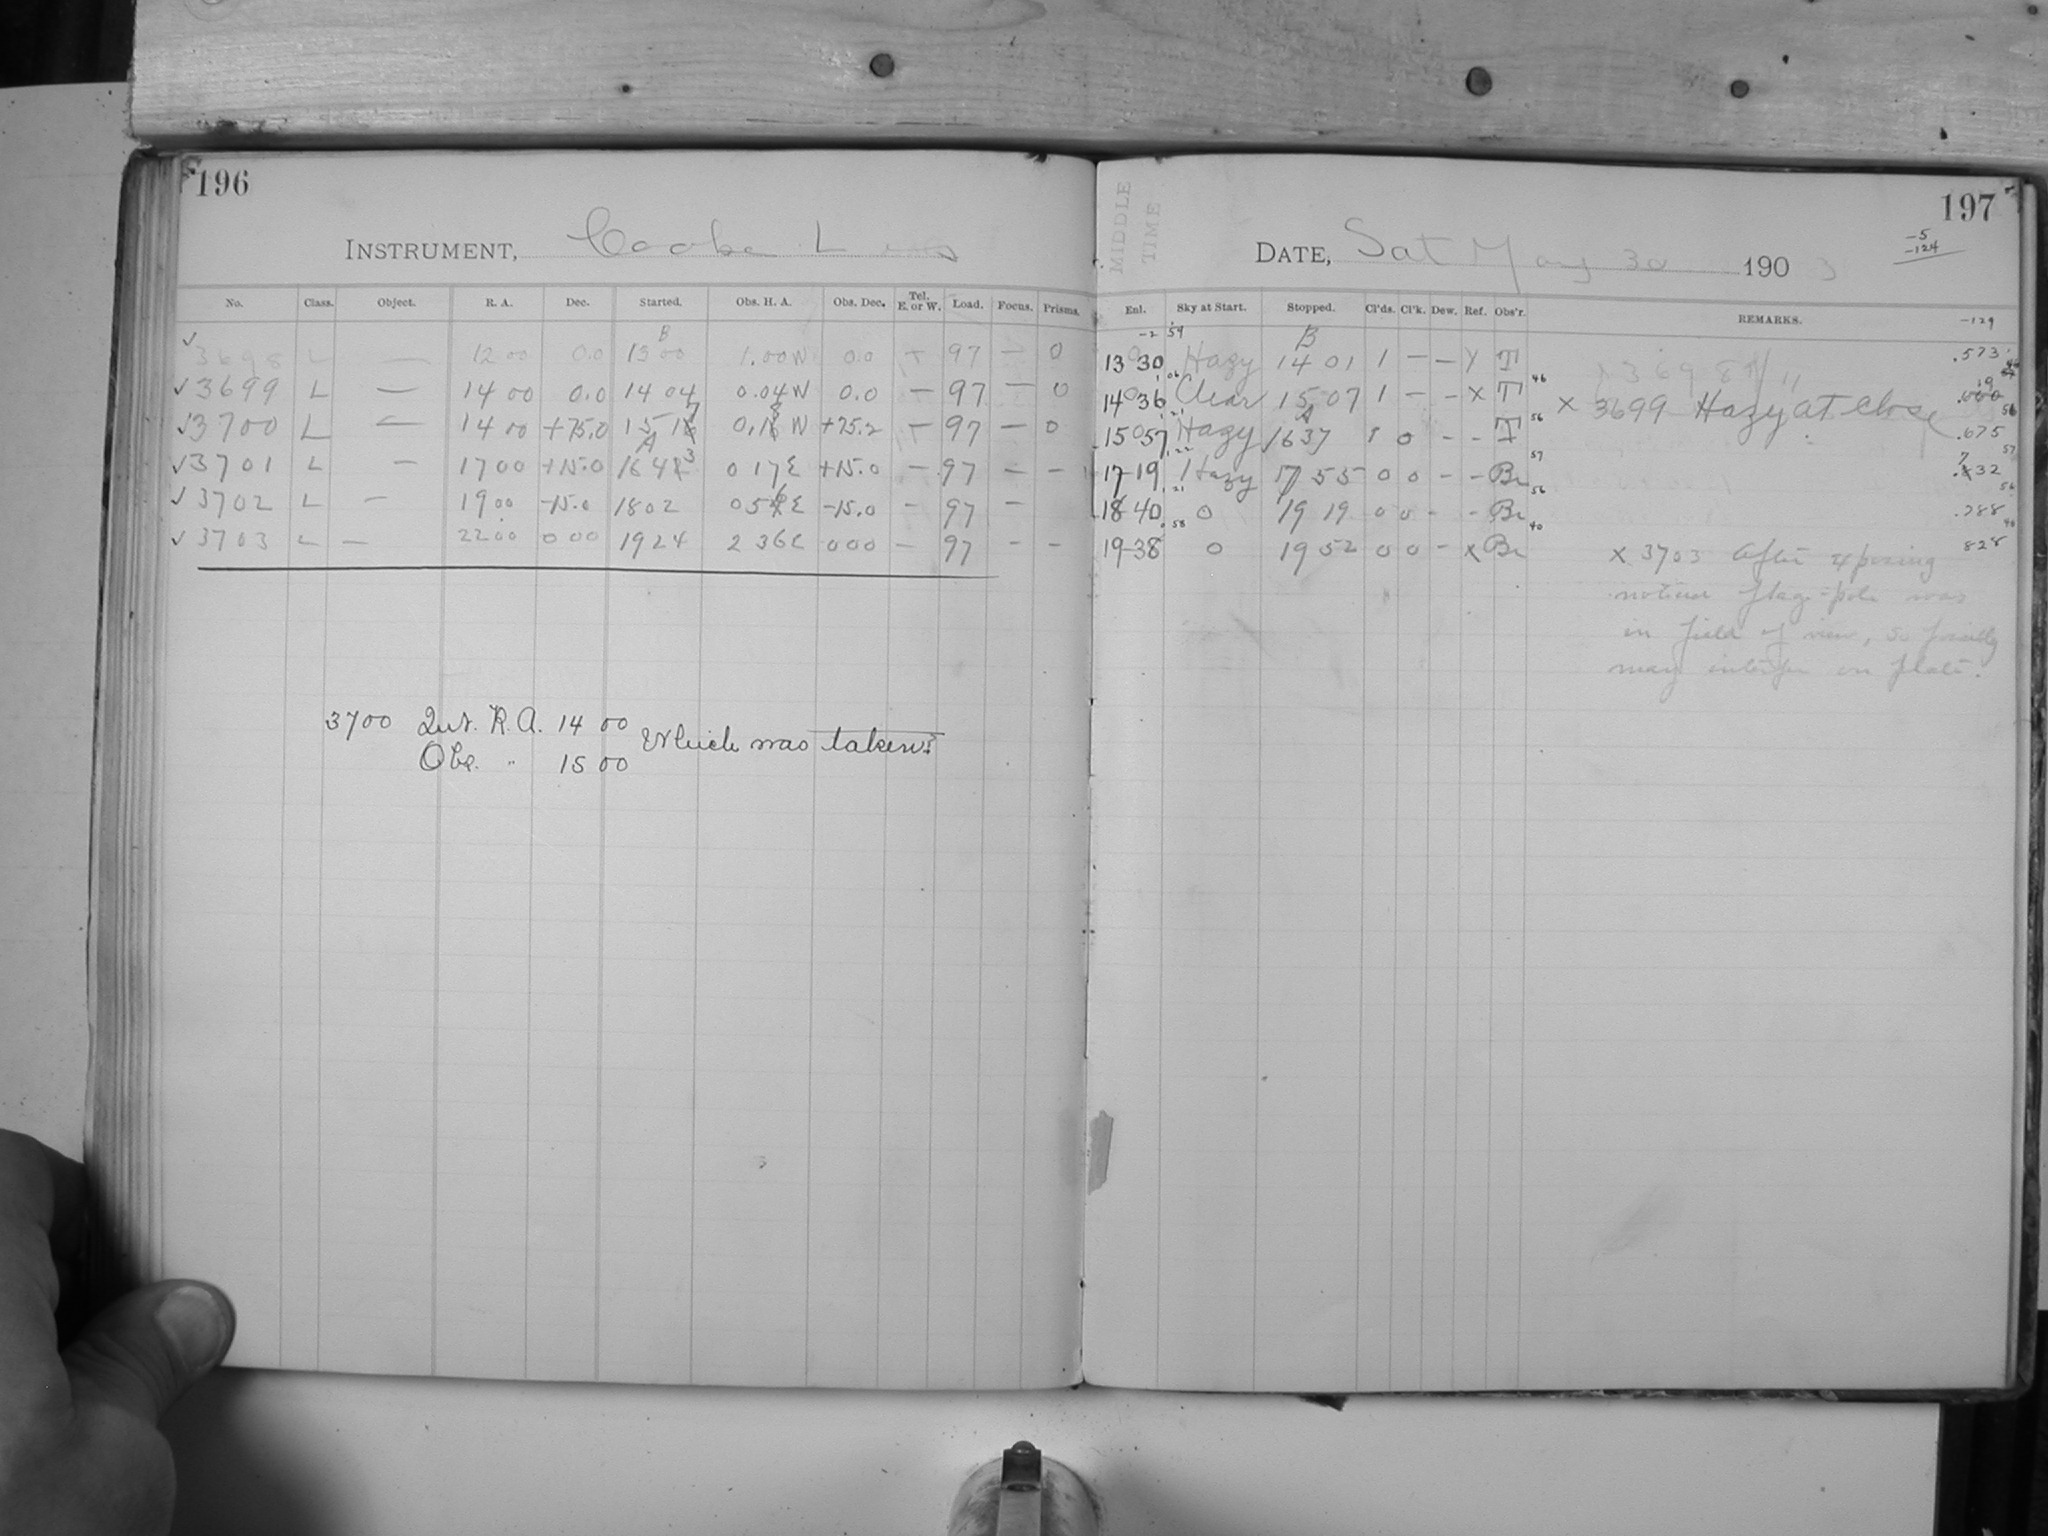 196
INSTRUMENT, Cooke Lens
No. Class. Object. R. A. Dec. Started. Obs. H. A. Obs. Dec. Tel. E. or W. Load. Focus. Prisms.
B
✓ 3698 L — 12 00 0.0 13 00 1.00 W 0.0 — 97 — 0
✓ 3699 L — 14 00 0.0 14 04 0.04 W 0.0 — 97 — 0
✓ 3700 L — 14 00 +75.0 15 17 0.18 W +75.2 — 97 — 0
A
✓ 3701 L — 17 00 +15.0 16 43 0 17 E +15.0 — 97 — —
✓ 3702 L — 19 00 -15.0 18 02 0 56 E -15.0 — 97 —
✓ 3703 L — 22 00 0 00 19 24 2 36 E 0 00 — 97 — —
3700 Int. R.A. 14 00
Obs. " 15 00
Which was taken?
197
MIDDLE TIME
DATE, Sat May 30 1903
-5
-124
Enl. Sky at Start. Stopped. Cl'ds. Cl'k. Dew. Ref. Obs'r. REMARKS. -129
-2 59 B
13 30 Hazy 14 01 1 — — T .573
14 36 Clear 15 07 1 — — x T 46 x 3699 Hazy at Close
A
15 57 Hazy 16 37 1 0 - - T 56 .675
17-19 Hazy 17 55 0 0 - - Br 57 .732
18 40 0 19 19 0 0 - - Br 56 .788
19-38 0 19 52 0 0 - x Br 40 828
x 3703 After exposing
noticed flag-pole was
in field of view, so possibly
may interfere on plate.